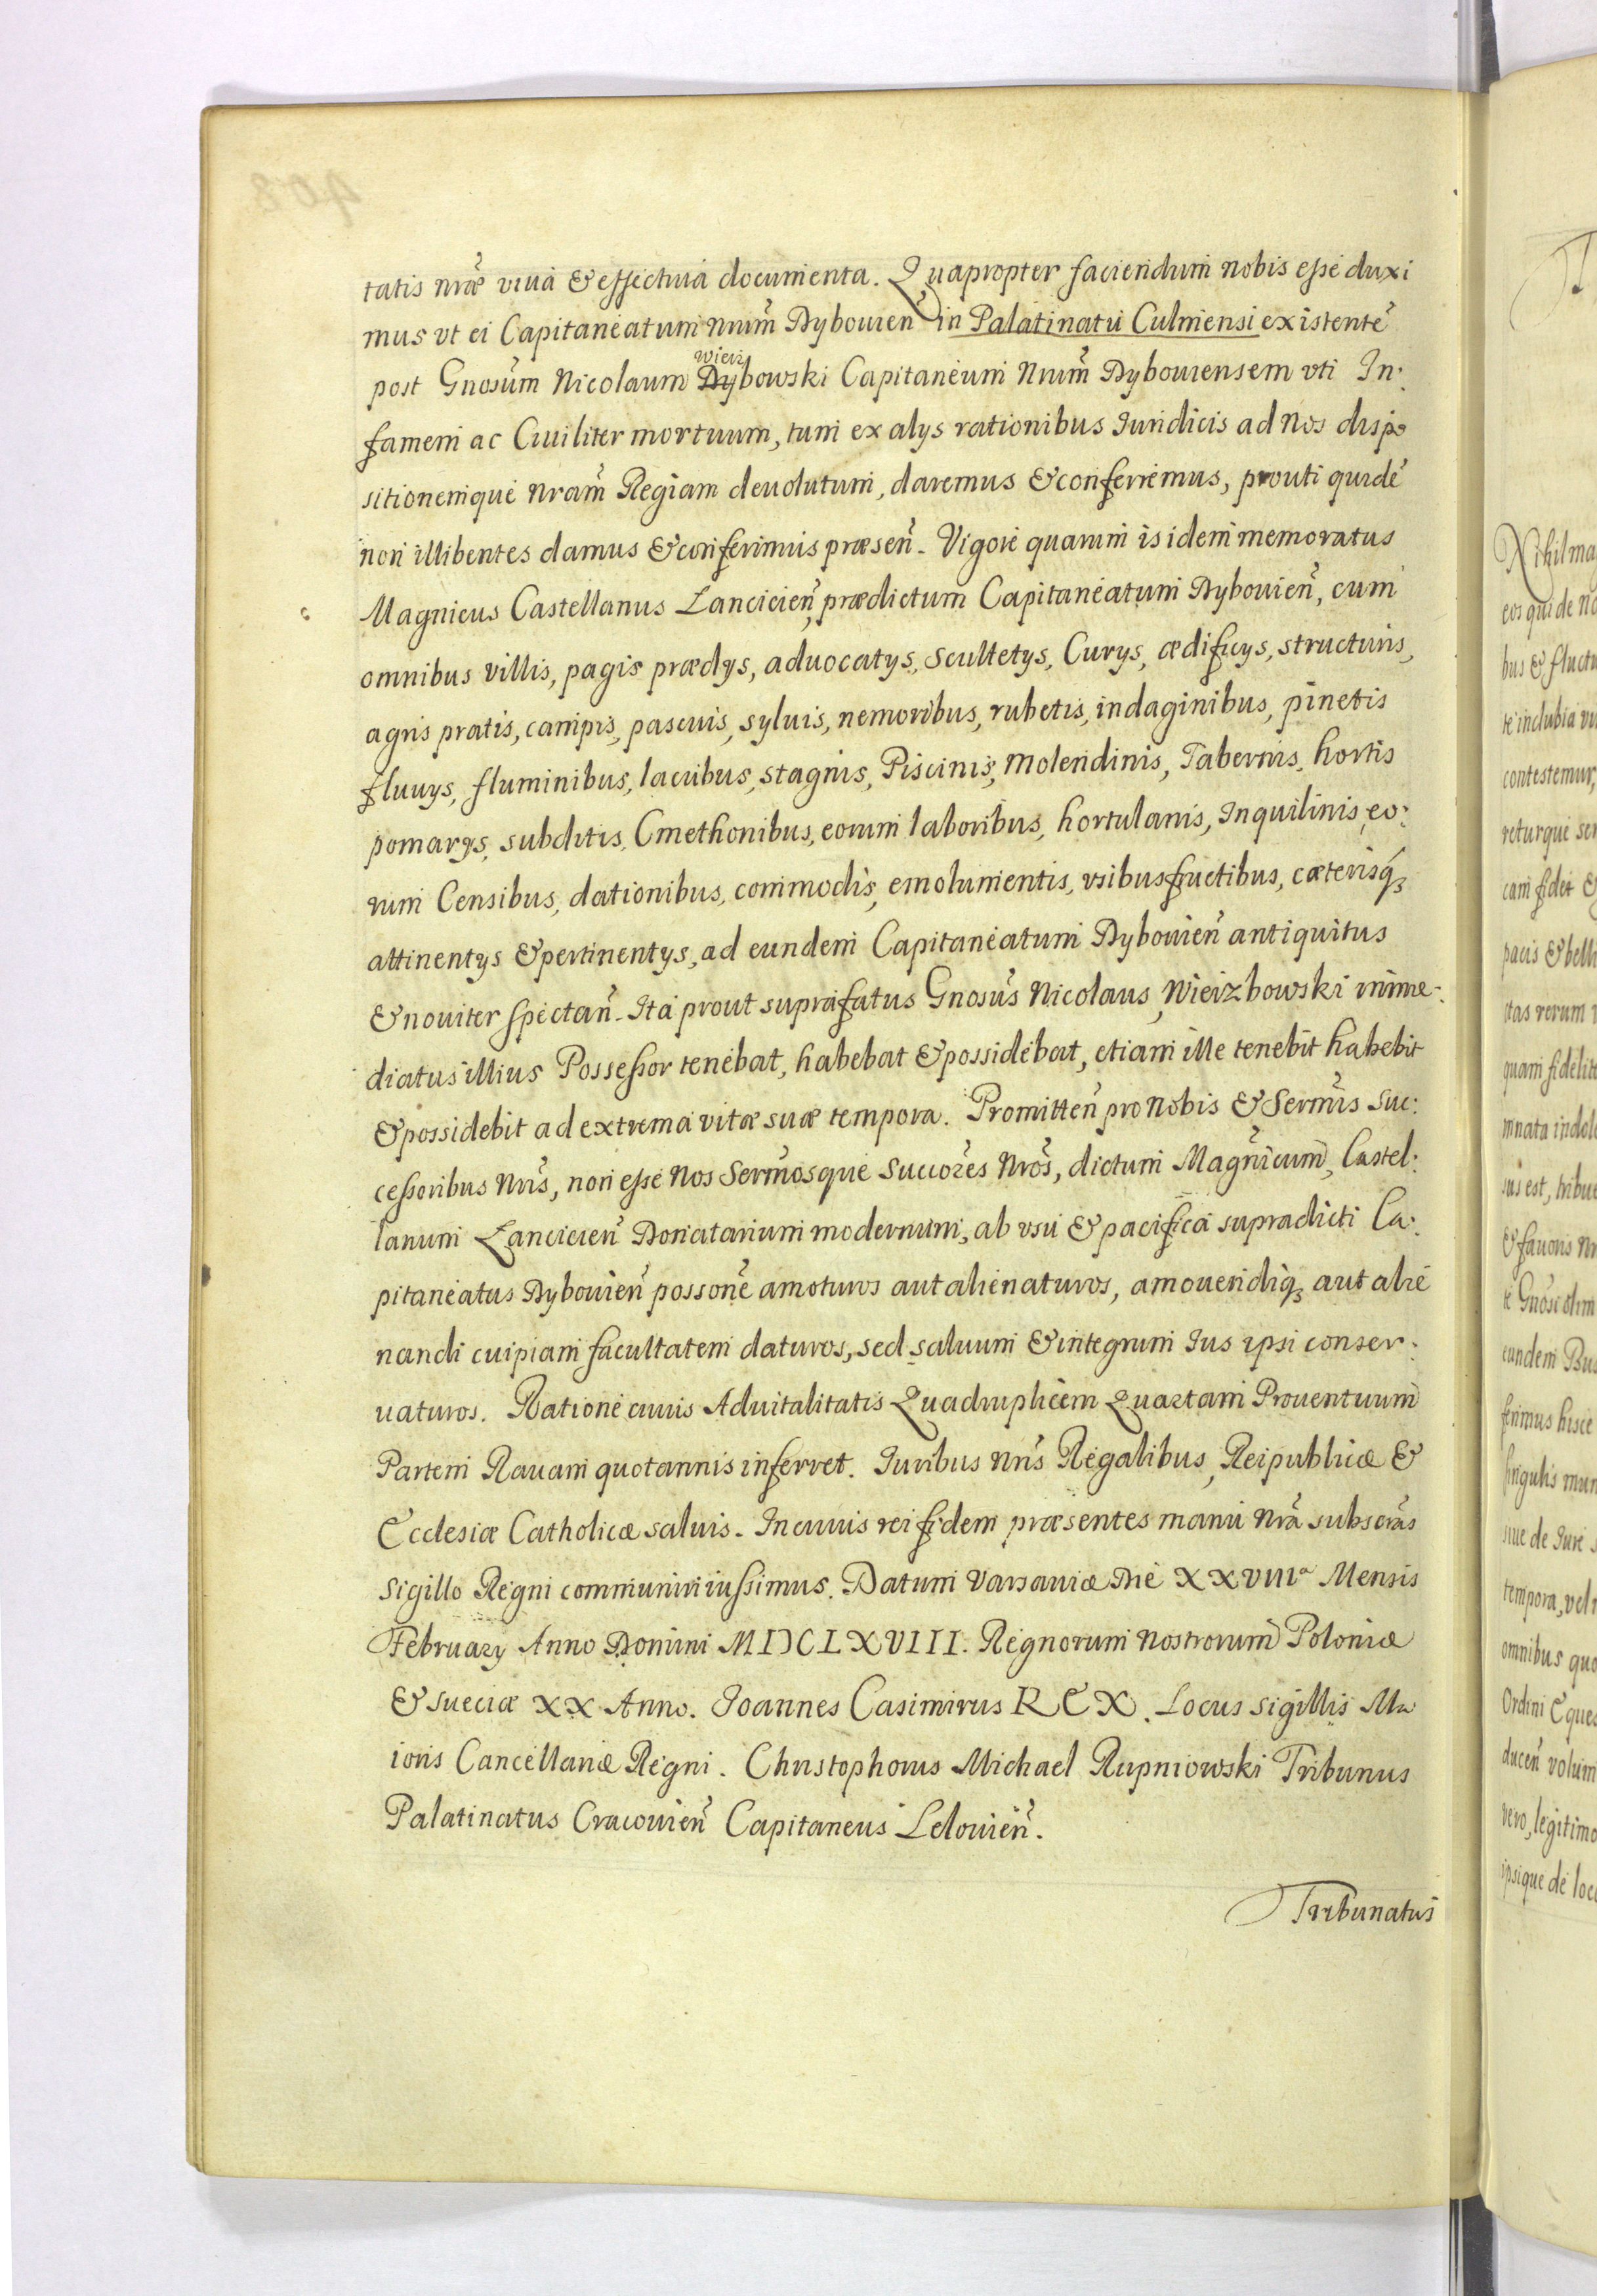 tatis nrãe viua & effectiua documenta. Quapropter faciendum nobis esse duxi
mus vt ei Capitaneatum nrum̃ Dybouień in Palatinatu Culmensi existentẽ
post Gnosum̃ Nicolaum Wierzbowski Capitaneum Nrum̃ Dybouiensem vti In:
famem ac Ciuiliter mortuum, tum ex alys rationibus Iuridicis ad Nos dispo
sitionemque nram̃ Regiam deuolutum, daremus & conferremus, prouti quidẽ
non illibentes damus & conferimus præseñ. Vigore quarum is idem memoratus
Magnicus Castellanus Lancicień, prædictum Capitaneatum Dybouień, cum
omnibus villis, pagis prædys, aduocatys, scultetys, Curys, ædificys, structuris,
agris pratis, campis, pascuis, syluis, nemoribus, rubetis, indaginibus, pinetis
fluuys, fluminibus, lacubus, stagnis, Piscinis, Molendinis, Tabernis, hortis
pomarys, subditis, Cmethonibus, eorum laboribus, hortulanis, Inquilinis, eo:
rum Censibus, dationibus, commodis, emolumentis, vsibusfructibus, cæterisq̃
attinentys & pertinentys, ad eundem Capitaneatum Dybouień antiquitus
& nouiter spectań. Ita prout suprafatus Gnosus̃ Nicolaus, Wierzbowski imme:
diatus illius Possessor tenebat, habebat & possidebat, etiam ille tenebit habebit
& possidebit ad extrema vitæ suæ tempora. Promitteń pro Nobis & Sermis̃ Suc:
cessoribus Nris̃, non esse Nos Sermos̃que Succores̃ Nros̃, dictum Magnicum̃, Castel:
lanum Lancicień Donatarium modernum, ab vsu & pacifica supradicti Ca:
pitaneatus Dybouień possonẽ amoturos aut alienaturos, amouendiq̃ aut alie
nandi cuipiam facultatem daturos, sed saluum & integrum Ius ipsi conser:
uaturos. Ratione cuius Aduitalitatis Quadruplicem Quartam Prouentuum
Partem Rauam quotannis inferret. Iuribus Nris̃ Regalibus, Reipublicæ &
Ecclesiæ Catholicæ saluis. In cuius rei fidem præsentes manu Nrã subscras̃
sigillo Regni communiri iussimus. Datum Varsauiæ Die XXVIIIa Mensis
February Anno Domini MDCLXVIII. Regnorum Nostrorum Poloniæ
& Sueciæ XX Anno. Joannes Casimirus REX. Locus sigillis Ma
ioris Cancellariæ Regni. Christophorus Michael Rupniowski Tribunus
Palatinatus Cracouień Capitaneus Lelouień.
Tribunatus